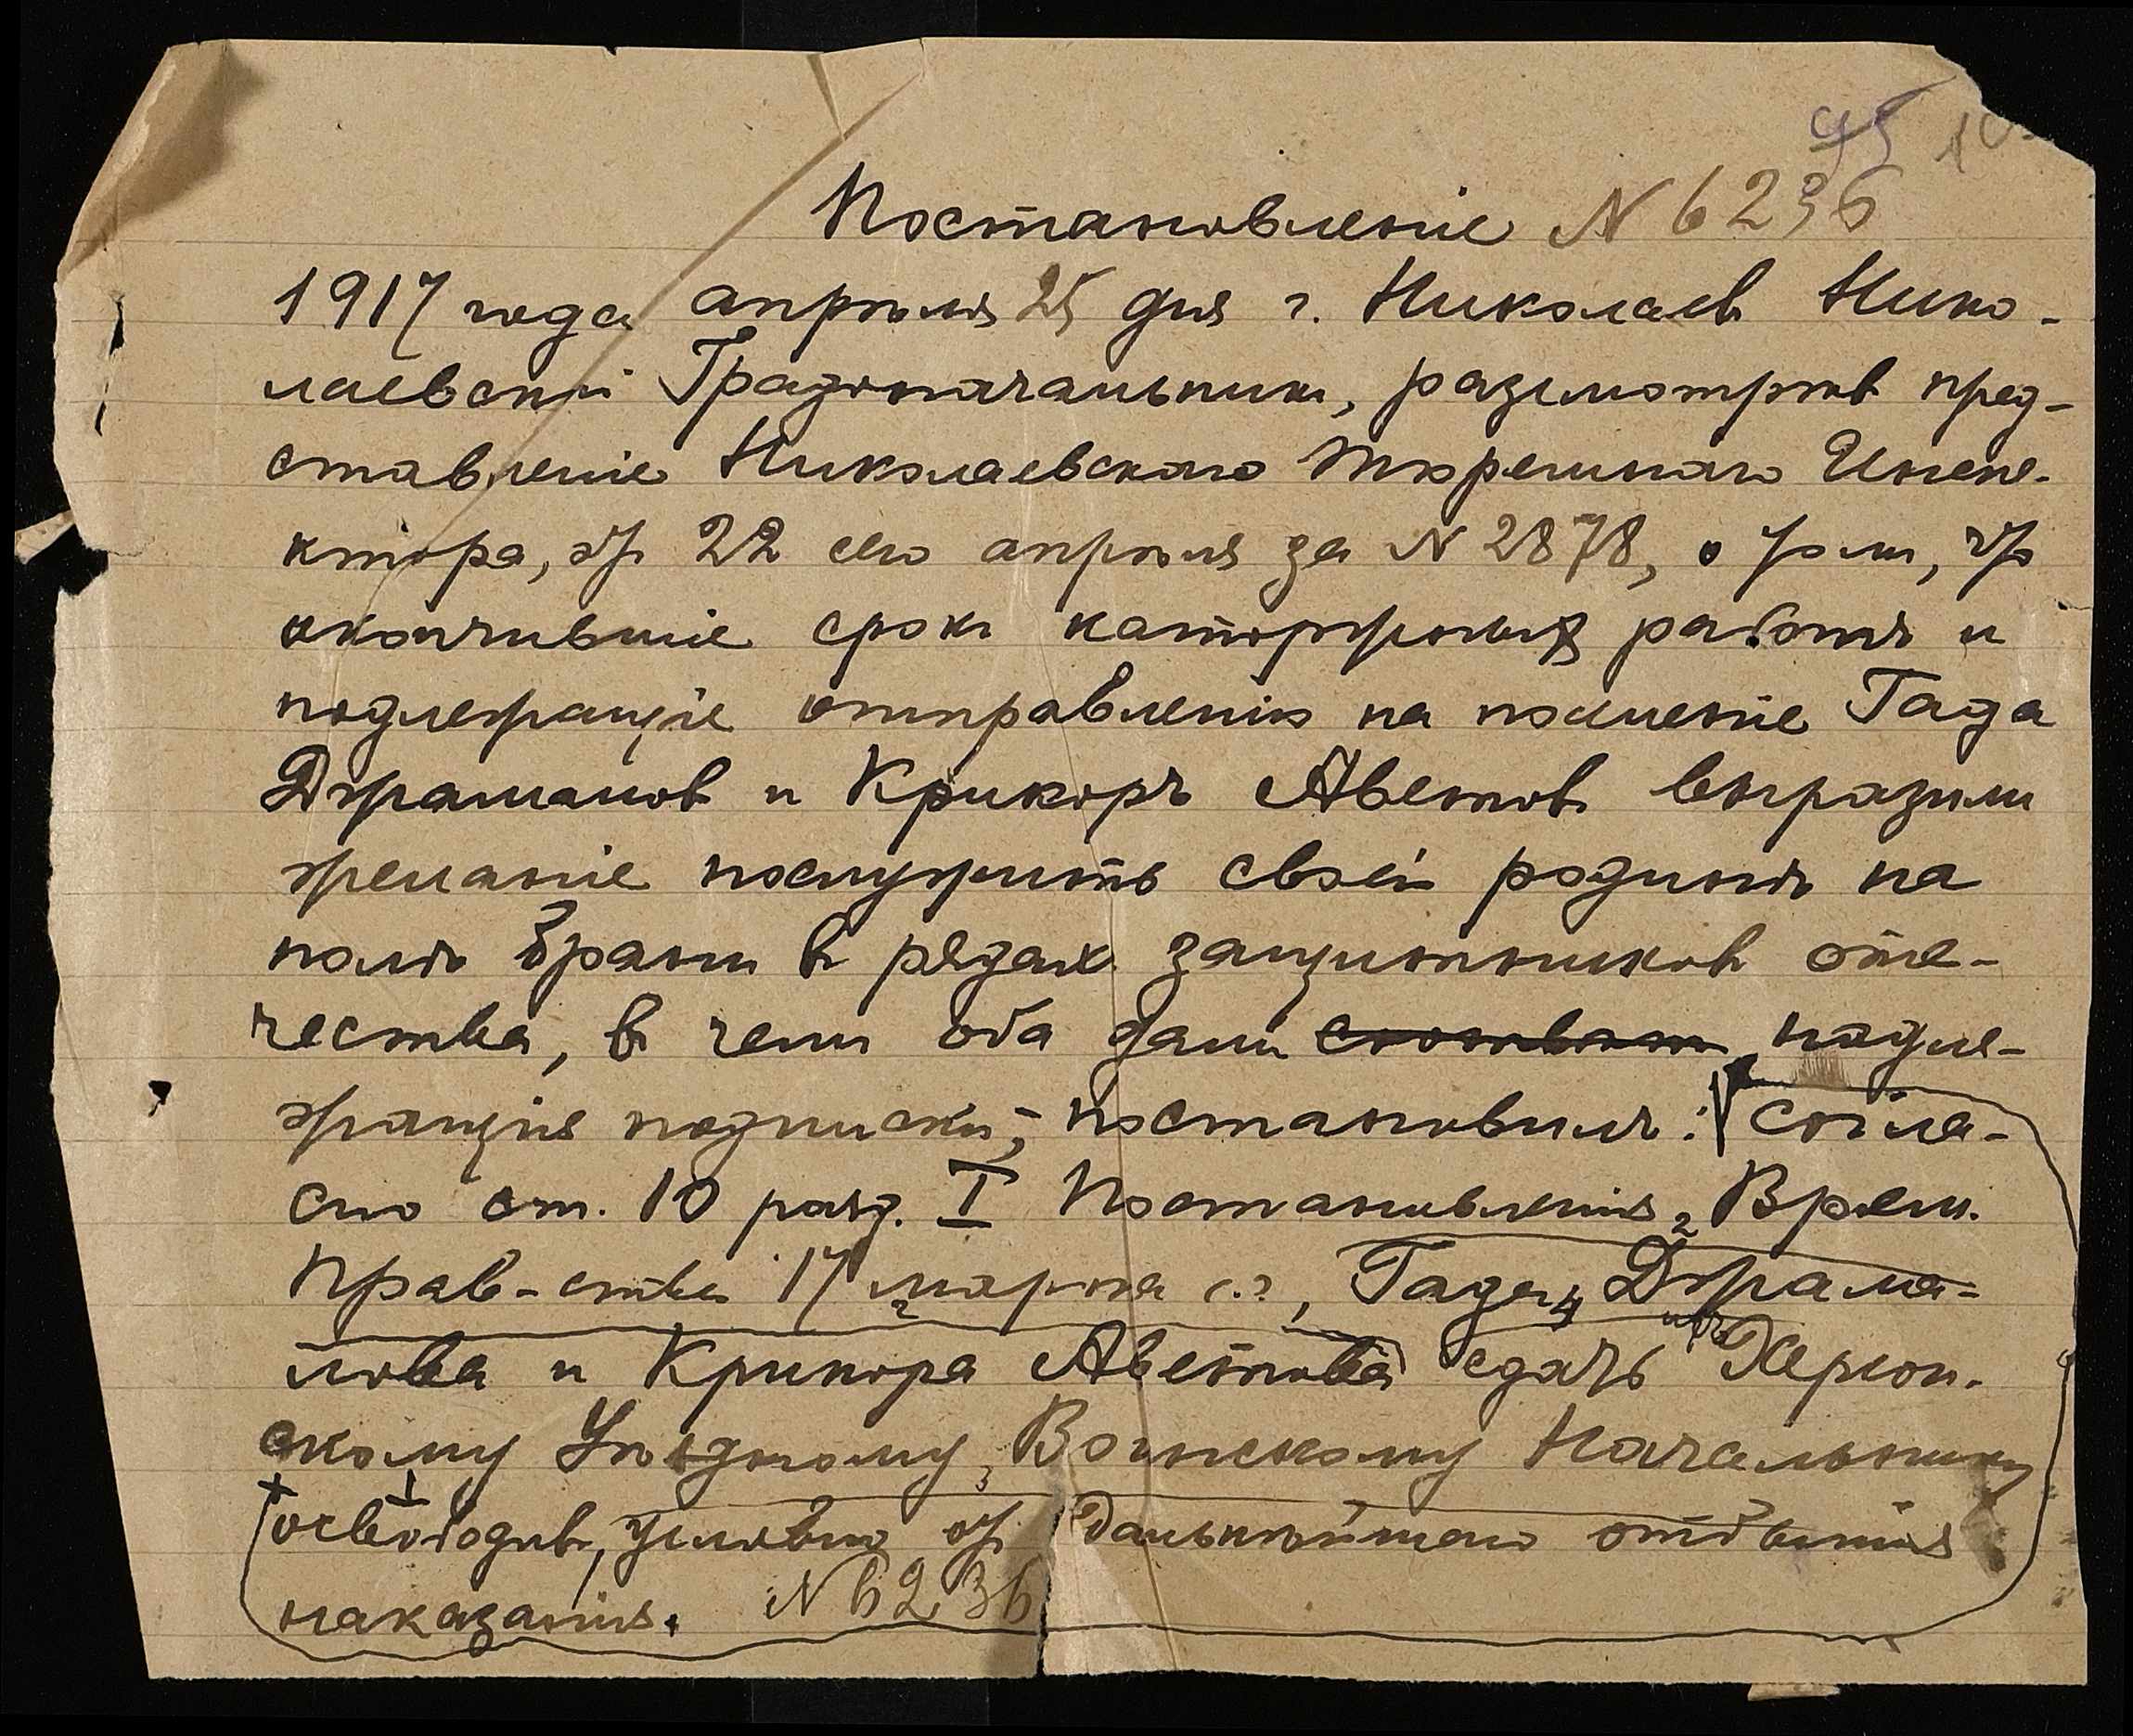 95
Постановленіе N 6236
1917 года апрѣля 25 дня г. Николаевъ Нико-
лаевскій Градоначальникъ, разсмотрѣвъ пред-
ставленіе Николаевскаго Тюремнаго Инспе-
ктора, отъ 22 сего апрѣля за N 2878, о томъ, что
окончившіе срокъ каторжныхъ работъ и
подлежащіе отправленію на поселеніе Гада
Джрамановъ и Крикоръ Аветовъ выразили
желаніе послужить своей родинѣ на
полѣ брани въ рядахъ защитниковъ оте-
чества, въ чемъ оба дали подле-
жащія подписки, - постановилъ: согла-
сно ст. 10 разд. I Постановленія Врем.
Прав-ства 17 марта с.г., Гада Джрама-
нова и Крикора Аветова сдать Херсон-
скому Уѣздному Воинскому Начальнику
освободивъ, условно отъ дальнѣйшаго отбытія
наказанія. N 6236